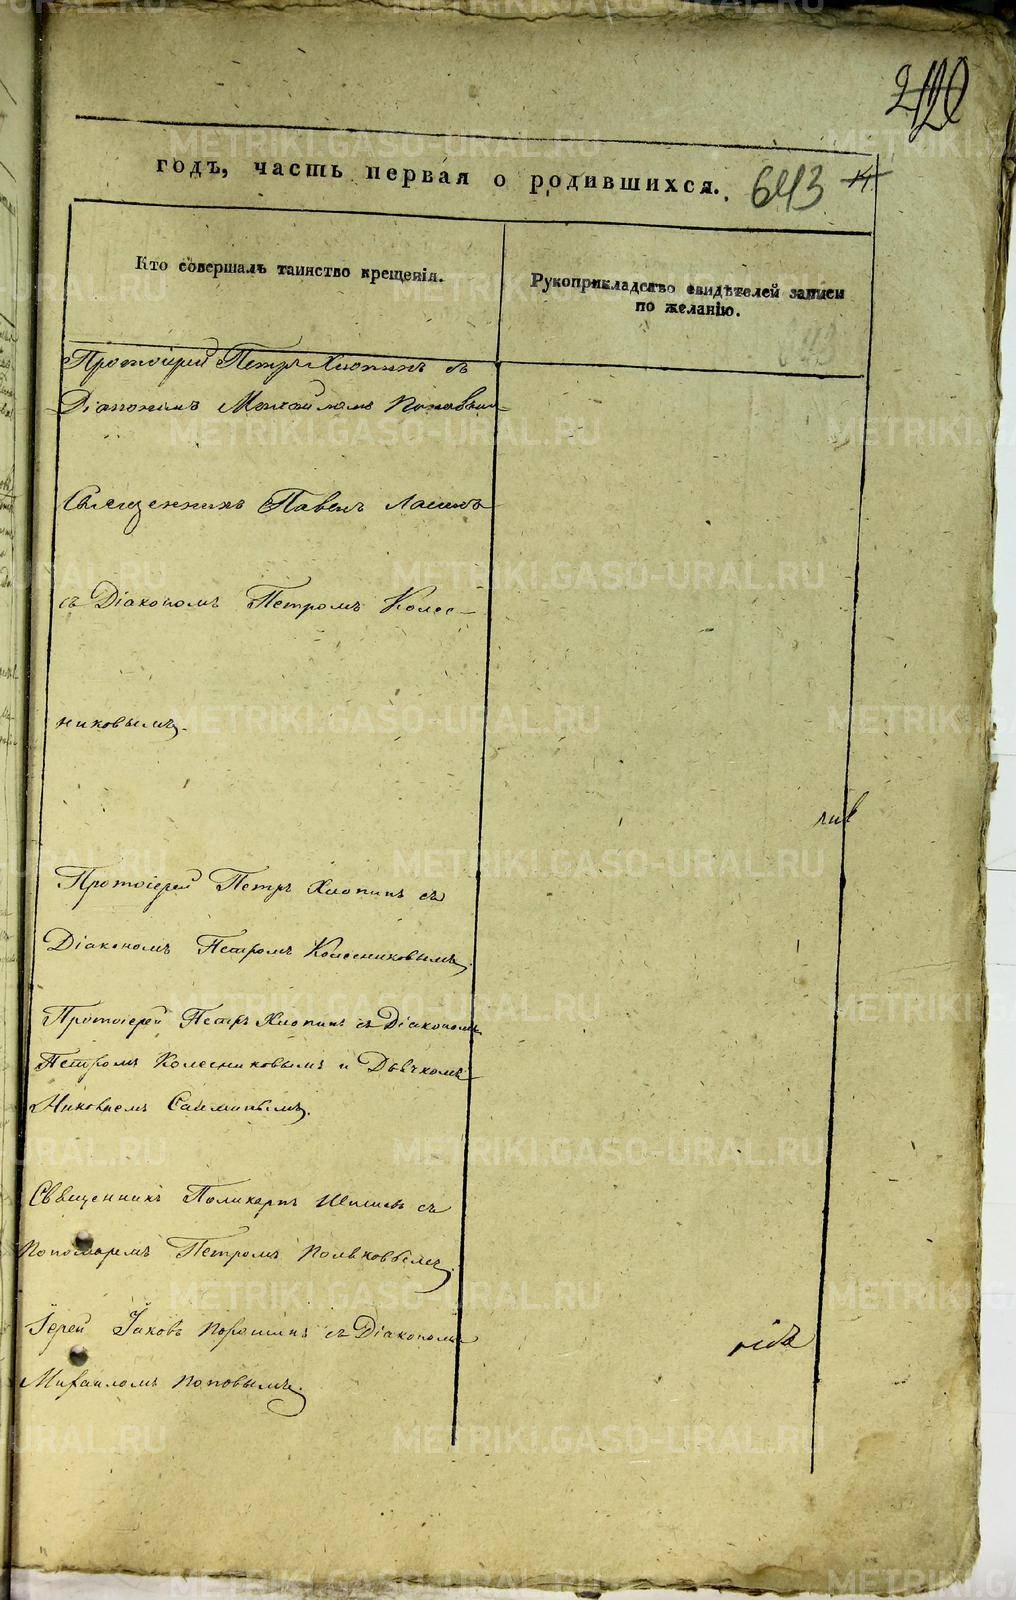 годъ, часть первая о родившихся. 643
Кто совершалъ таинство крещенія.
Рукоприкладство свидѣтелей записи
по желанію.
Протоіерей Петръ Хлопинъ съ
Діакономъ Михаиломъ Поповымъ
Священникъ Павелъ
съ Діакономъ Петромъ Колес-
никовымъ.
Протоіерей Петръ Хлопинъ съ
Діакономъ Петромъ Колесниковымъ.
Протоіерей Петръ Хлопинъ съ Діакономъ
Петромъ Колесниковымъ и Дьячкомъ
Священникъ Поликарпъ съ
Пономаремъ Петромъ
Іерей Іаковъ съ Діакономъ
Михаиломъ Поповымъ.
METRIKI.GASO-URAL.RU